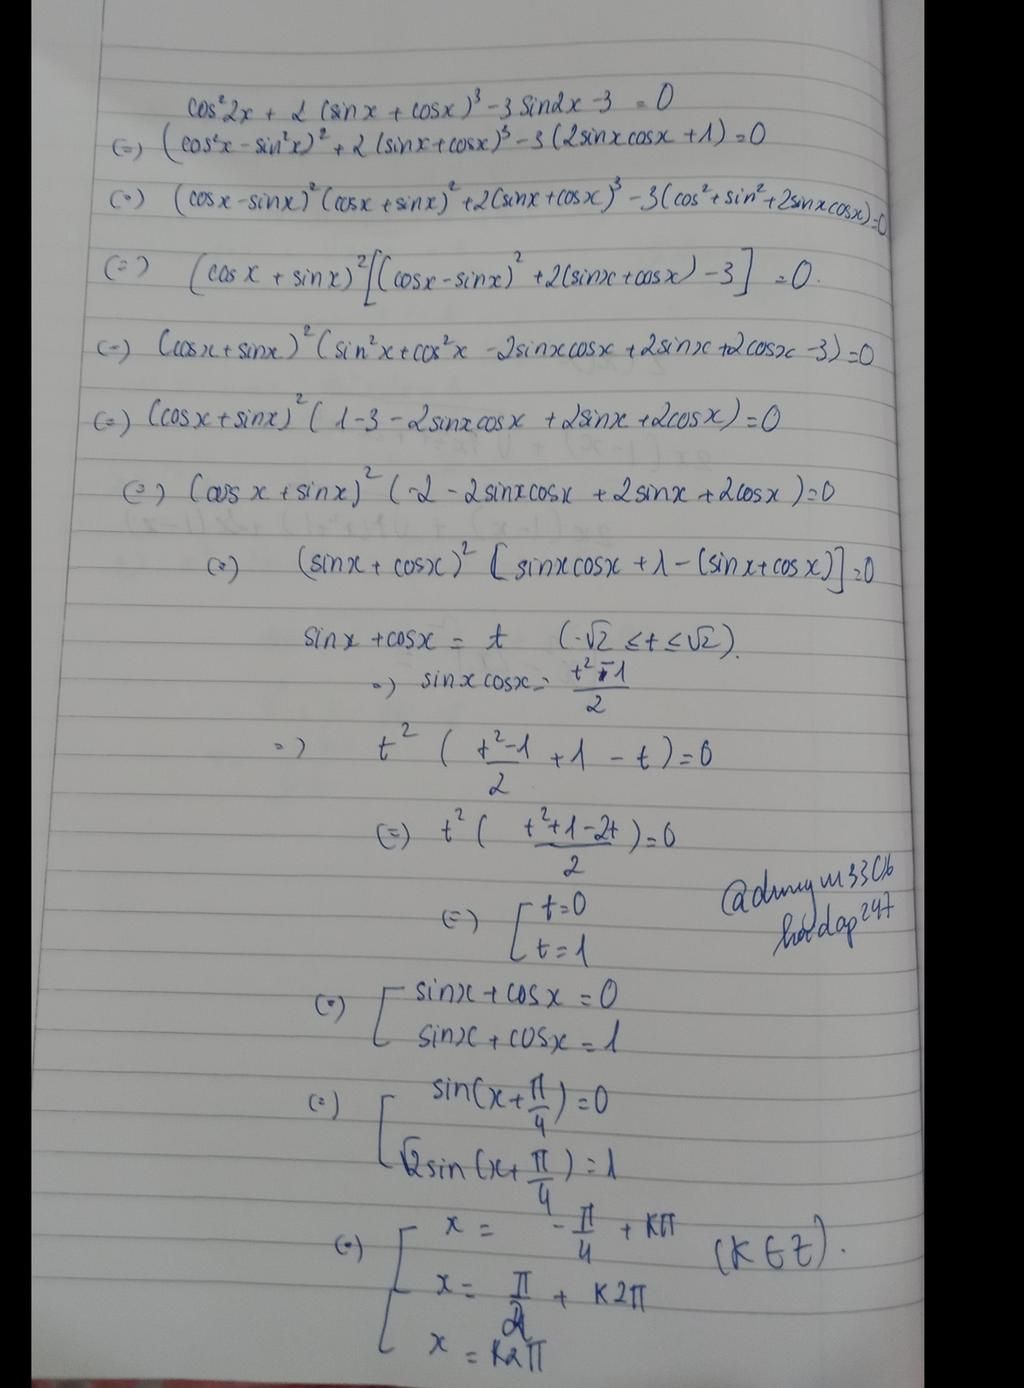 cos²2x + 2(sinx + cosx)³ - 3sin2x - 3 = 0
(=) (cos²x - sin²x)² + 2(sinx + cosx)³ - 3(2sinxcosx + 1) = 0
(=) (cosx - sinx)²(cosx + sinx)² + 2(sinx + cosx)³ - 3(cos² + sin² + 2sinxcosx) = 0
(=) (cosx + sinx)²[(cosx - sinx)² + 2(sinx + cosx) - 3] = 0.
(=) (cosx + sinx)²(sin²x + cos²x - 2sinxcosx + 2sinx + 2cosx - 3) = 0
(=) (cosx + sinx)²(1 - 3 - 2sinxcosx + 2sinx + 2cosx) = 0
(=) (cosx + sinx)²(-2 - 2sinxcosx + 2sinx + 2cosx) = 0
(=) (sinx + cosx)²[sinxcosx + 1 - (sinx + cosx)] = 0
sinx + cosx = t (-√2 ≤ t ≤ √2).
=) sinxcosx = (t² - 1)/2
=) t²((t² - 1)/2 + 1 - t) = 0
(=) t²((t² + 1 - 2t)/2) = 0
(=) [t = 0
t = 1
@dungm3306
hoidap247
(=) [sinx + cosx = 0
sinx + cosx = 1
(=) [sin(x + π/4) = 0
√2sin(x + π/4) = 1
(=) [x = -π/4 + Kπ (K ∈ Z).
x = π/2 + K2π
x = K2π